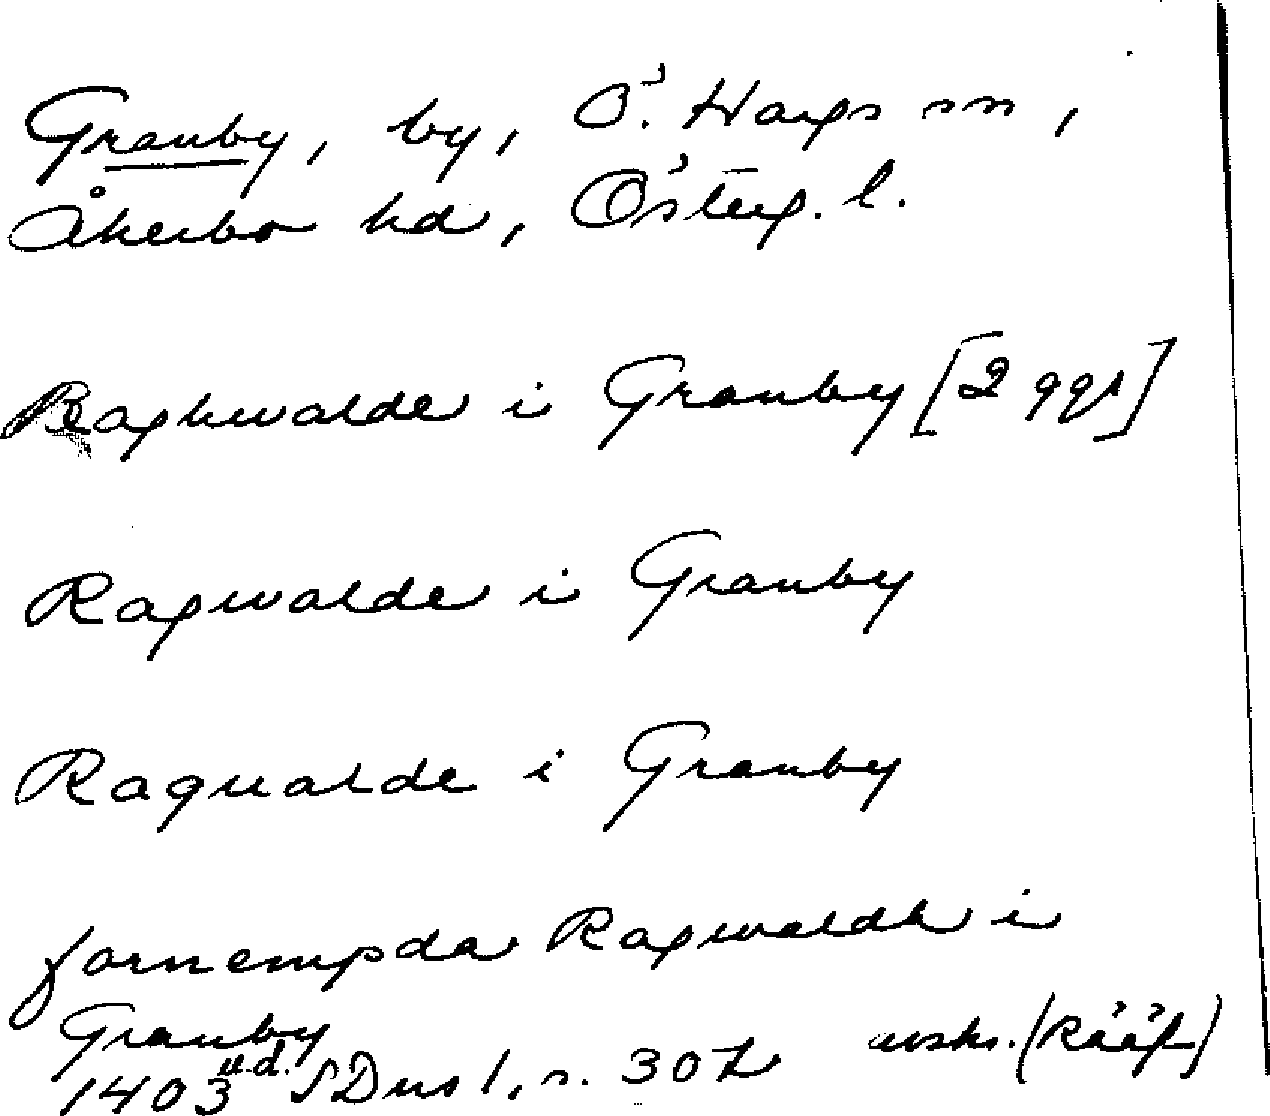 Granby, by, Ö. Hargs sn,
Åkerbo hd, Österg. l.
Raghwalde i Granby [2 ggr]
Ragwalde i Granby
Ragualde i Granby
fornempda Ragwaldh i
Granby
1403 u.d. SDns 1, s. 307 avskr. (Rääf)